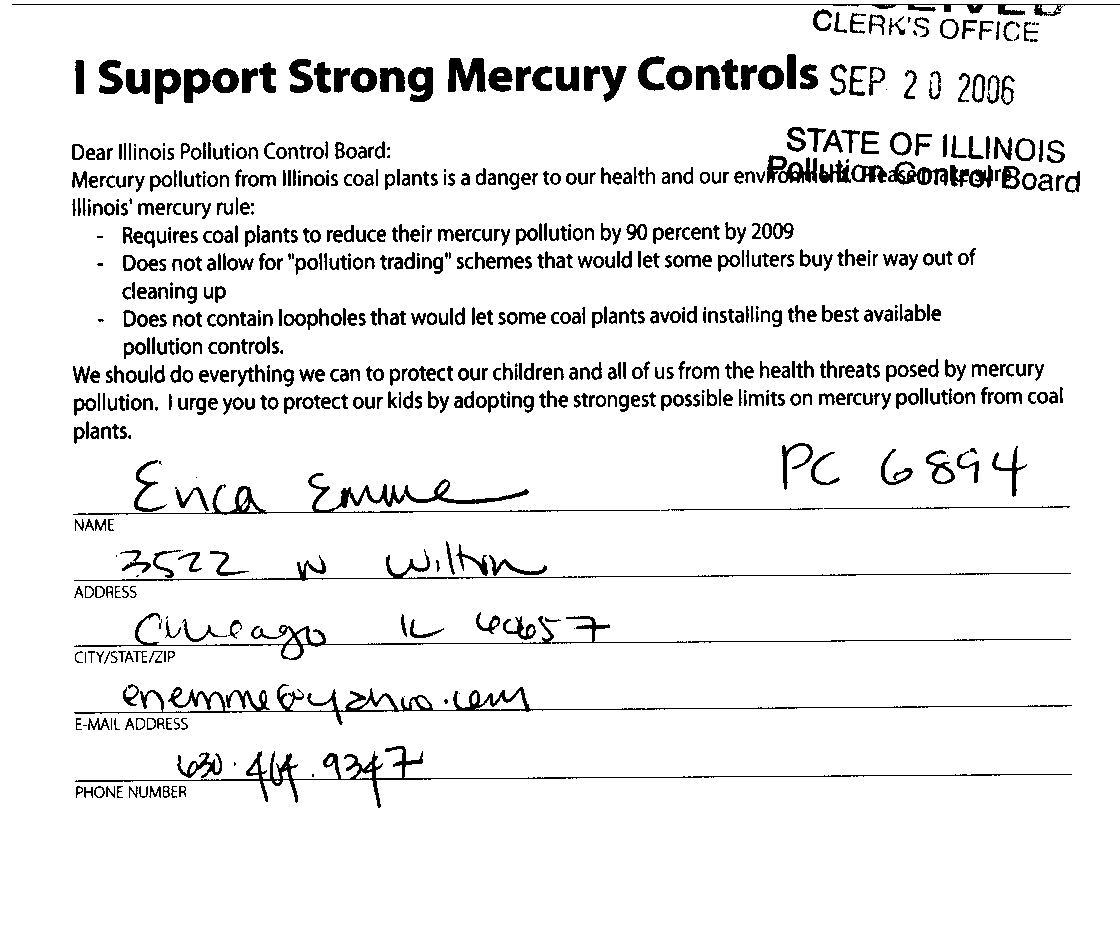 RECEIVED
CLERK'S OFFICE
I Support Strong Mercury Controls
SEP 20 2006
STATE OF ILLINOIS
Pollution Control Board
Dear Illinois Pollution Control Board:
Mercury pollution from Illinois coal plants is a danger to our health and our environment. Please make sure
Illinois' mercury rule:
- Requires coal plants to reduce their mercury pollution by 90 percent by 2009
- Does not allow for "pollution trading" schemes that would let some polluters buy their way out of
cleaning up
- Does not contain loopholes that would let some coal plants avoid installing the best available
pollution controls.
We should do everything we can to protect our children and all of us from the health threats posed by mercury
pollution. I urge you to protect our kids by adopting the strongest possible limits on mercury pollution from coal
plants.
Erica Emme
PC 6894
NAME
3522 N Wilton
ADDRESS
Chicago IL 60657
CITY/STATE/ZIP
enemme@yahoo.com
E-MAIL ADDRESS
630.464.9347
PHONE NUMBER